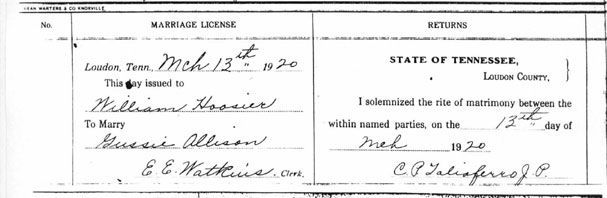 SEAN WARTERS & CO KNOXVILLE
No.
MARRIAGE LICENSE
RETURNS
Loudon, Tenn., Mch 13th 1920
This day issued to
William Hoosier
To Marry
Gussie Allison
E. E. Watkins, Clerk.
STATE OF TENNESSEE,
LOUDON COUNTY,
I solemnized the rite of matrimony between the
within named parties, on the 13th day of
Mch 1920
C. P. Taliaferro J. P.